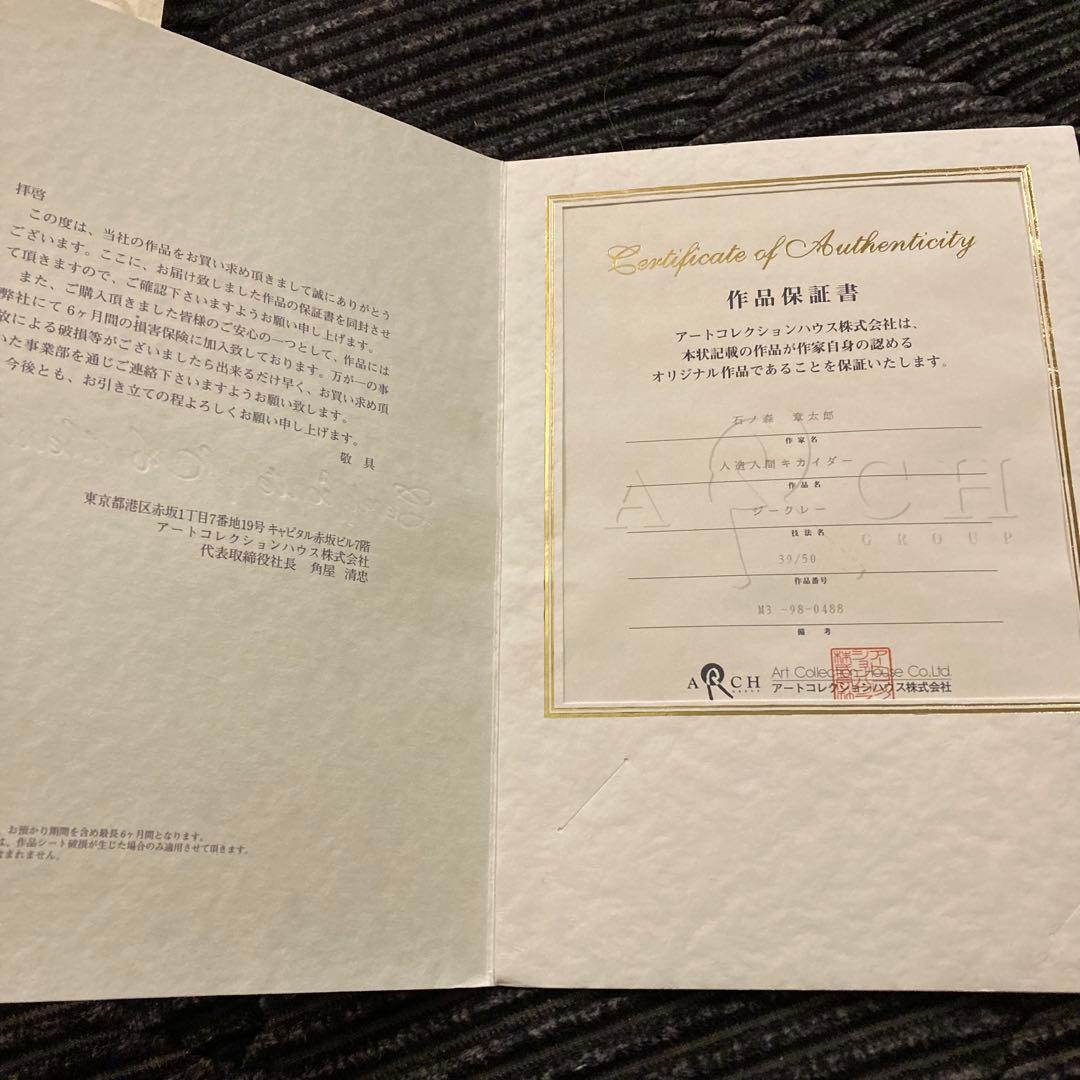 拝啓
この度は、当社の作品をお買い求め頂きまして誠にありがとう
ございます。ここに、お届け致しました作品の保証書を同封させ
て頂きますので、ご確認下さいますようお願い申し上げます。
また、ご購入頂きました皆様のご安心の一つとして、作品には
弊社にて6ヶ月間の損害保険に加入致しております。万が一の事
故による破損等がございましたら出来るだけ早く、お買い求め頂
いた事業部を通じご連絡下さいますようお願い致します。
今後とも、お引き立ての程よろしくお願い申し上げます。
敬具
東京都港区赤坂1丁目7番地19号 キャピタル赤坂ビル7階
アートコレクションハウス株式会社
代表取締役社長 角屋 清忠
お預かり期間を含め最長6ヶ月間となります。
は、作品シート破損が生じた場合のみ適用させて頂きます。
含まれません。
Certificate of Authenticity
作品保証書
アートコレクションハウス株式会社は、
本状記載の作品が作家自身の認める
オリジナル作品であることを保証いたします。
石ノ森 章太郎
作家名
人造人間キカイダー
作品名
ジークレー
技法名
39/50
作品番号
M3 -98-0488
備考
ARCH GROUP
ARCH
Art Collection House Co.Ltd.
アートコレクションハウス株式会社